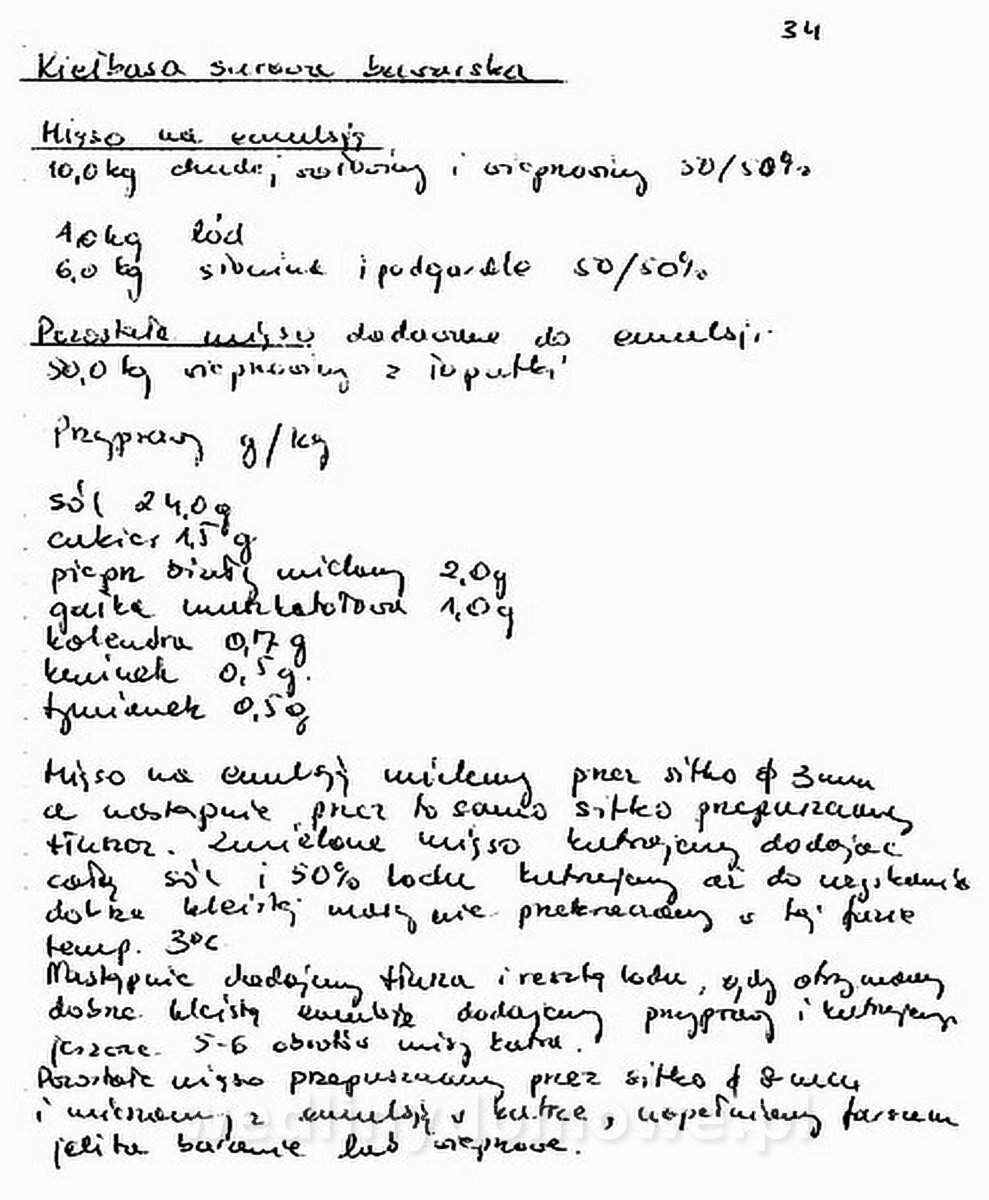 34
Kiełbasa surowa bawarska
Mięso na emulsję
10,0 kg chudej wołowiny i wieprzowiny 50/50%
lód
6,0 kg słonina i podgardle 50/50%
Pozostałe mięso dodawane do emulsji
50,0 kg wieprzowiny z łopatki
Przyprawy g/kg
sól 24,0 g
cukier 1,5 g
pieprz biały mielony 2,0 g
gałka muszkatołowa 1,0 g
kolendra 0,7 g
kminek 0,5 g.
tymianek 0,5 g
Mięso na emulsję mielemy przez sitko ϕ 3 mm
a następnie przez to samo sitko przepuszczamy
tłuszcz. Zmielone mięso kutrujemy dodając
całą sól i 50% lodu kutrujemy aż do uzyskania
dobrze kleistej masy nie przekraczamy w tej fazie
temp. 3°C
Następnie dodajemy tłuszcz i resztę lodu, gdy otrzymamy
dobrze kleistą emulsję dodajemy przyprawy i kutrujemy
jeszcze 5-6 obrotów misy kutra.
Pozostałe mięso przepuszczamy przez sitko ϕ 8 mm
i mieszamy z emulsją w kutrze, napełniamy farszem
jelita baranie lub wieprzowe.
wedlinydomowe.pl